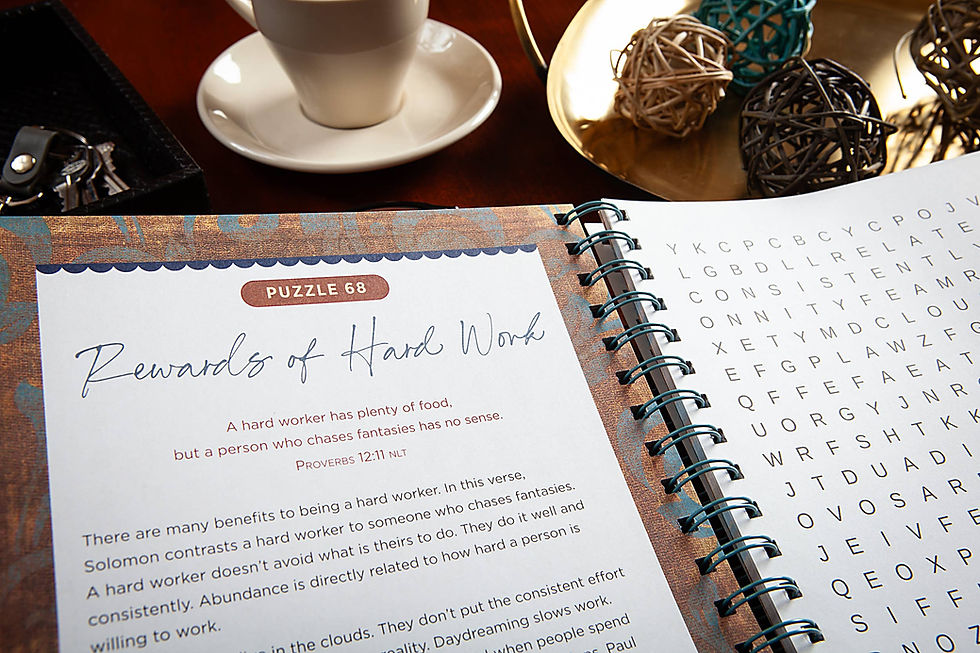 PUZZLE 68
Rewards of Hard Work
A hard worker has plenty of food,
but a person who chases fantasies has no sense.
PROVERBS 12:11 NLT
There are many benefits to being a hard worker. In this verse,
Solomon contrasts a hard worker to someone who chases fantasies.
A hard worker doesn't avoid what is theirs to do. They do it well and
consistently. Abundance is directly related to how hard a person is
willing to work.
in the clouds. They don't put the consistent effort
Daydreaming slows work.
when people spend
Paul
Y K C P C B C Y C P O J V
L G B D L L R E L A T E
C O N S I S T E N T L
O N N I T Y F E A M R
X E T Y M D C L O U
E F G P L A W Z F
Q F F E F A E A T
U O R G Y J N R
W R F S H T K K
J T D U A D
O V O S A R
J E I V F
Q E O X P
S I F F
N O Z